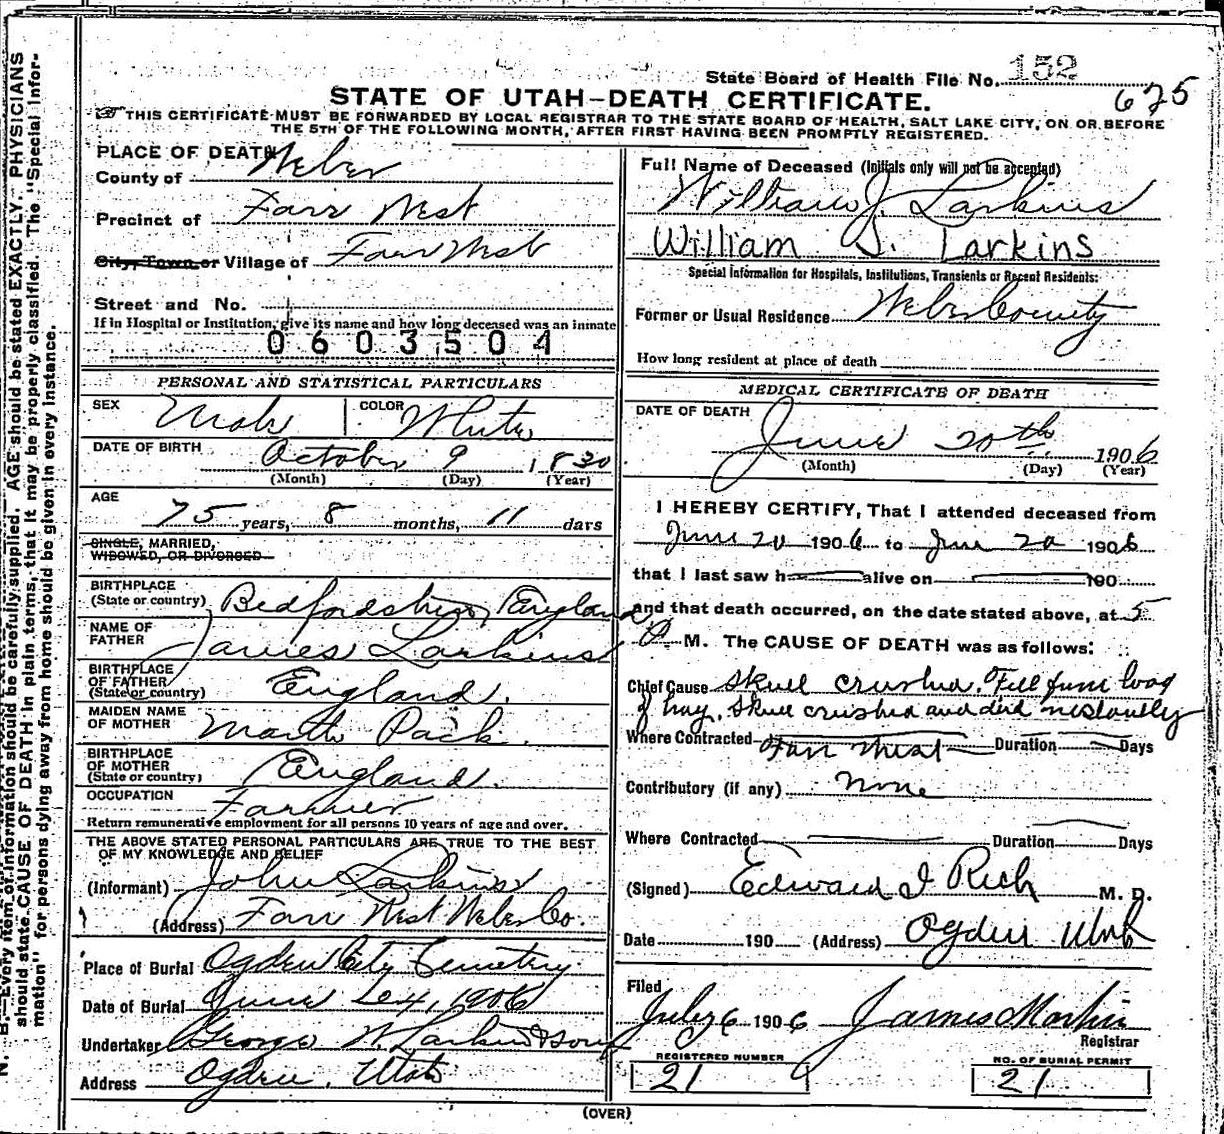 State Board of Health File No. 152
675
STATE OF UTAH—DEATH CERTIFICATE.
THIS CERTIFICATE MUST BE FORWARDED BY LOCAL REGISTRAR TO THE STATE BOARD OF HEALTH, SALT LAKE CITY, ON OR BEFORE
THE 5TH OF THE FOLLOWING MONTH, AFTER FIRST HAVING BEEN PROMPTLY REGISTERED.
N. B.—Every item of information should be carefully supplied. AGE should be stated EXACTLY. PHYSICIANS
should state CAUSE OF DEATH in plain terms, that it may be properly classified. The "Special Infor-
mation" for persons dying away from home should be given in every instance.
PLACE OF DEATH
County of Weber
Precinct of Farr West
City, Town or Village of Farr West
Street and No.
If in Hospital or Institution, give its name and how long deceased was an inmate
0603504
PERSONAL AND STATISTICAL PARTICULARS
SEX Male COLOR White
DATE OF BIRTH October 9 1830
(Month) (Day) (Year)
AGE
75 years, 8 months, 11 days
SINGLE, MARRIED,
WIDOWED, OR DIVORCED
BIRTHPLACE
(State or country) Bedfordshire, England
NAME OF
FATHER James Larkins
BIRTHPLACE
OF FATHER
(State or country) England.
MAIDEN NAME
OF MOTHER Marth Pack.
BIRTHPLACE
OF MOTHER
(State or country) England.
OCCUPATION Farmer
Return remunerative employment for all persons 10 years of age and over.
THE ABOVE STATED PERSONAL PARTICULARS ARE TRUE TO THE BEST
OF MY KNOWLEDGE AND BELIEF
(Informant) John Larkins
(Address) Farr West Weber Co.
Place of Burial Ogden City Cemetery
Date of Burial June 24, 1906
Undertaker George W. Larkin & Sons
Address Ogden, Utah
Full Name of Deceased (Initials only will not be accepted)
William J. Larkins
William J. Larkins
Special Information for Hospitals, Institutions, Transients or Recent Residents:
Former or Usual Residence Weber County
How long resident at place of death
MEDICAL CERTIFICATE OF DEATH
DATE OF DEATH
June 20th 1906
(Month) (Day) (Year)
I HEREBY CERTIFY, That I attended deceased from
June 20 1906 to June 20 1906
that I last saw h alive on 190
and that death occurred, on the date stated above, at 5
P M. The CAUSE OF DEATH was as follows:
Chief Cause Skull crushed. Fell from load
of hay. Skull crushed and died instantly
Where Contracted Farr West Duration Days
Contributory (if any) None
Where Contracted Duration Days
(Signed) Edward I Rich M. D.
Date 190 (Address) Ogden Utah
Filed
July 6 1906 James Martin
Registrar
REGISTERED NUMBER
21
NO. OF BURIAL PERMIT
21
(OVER)